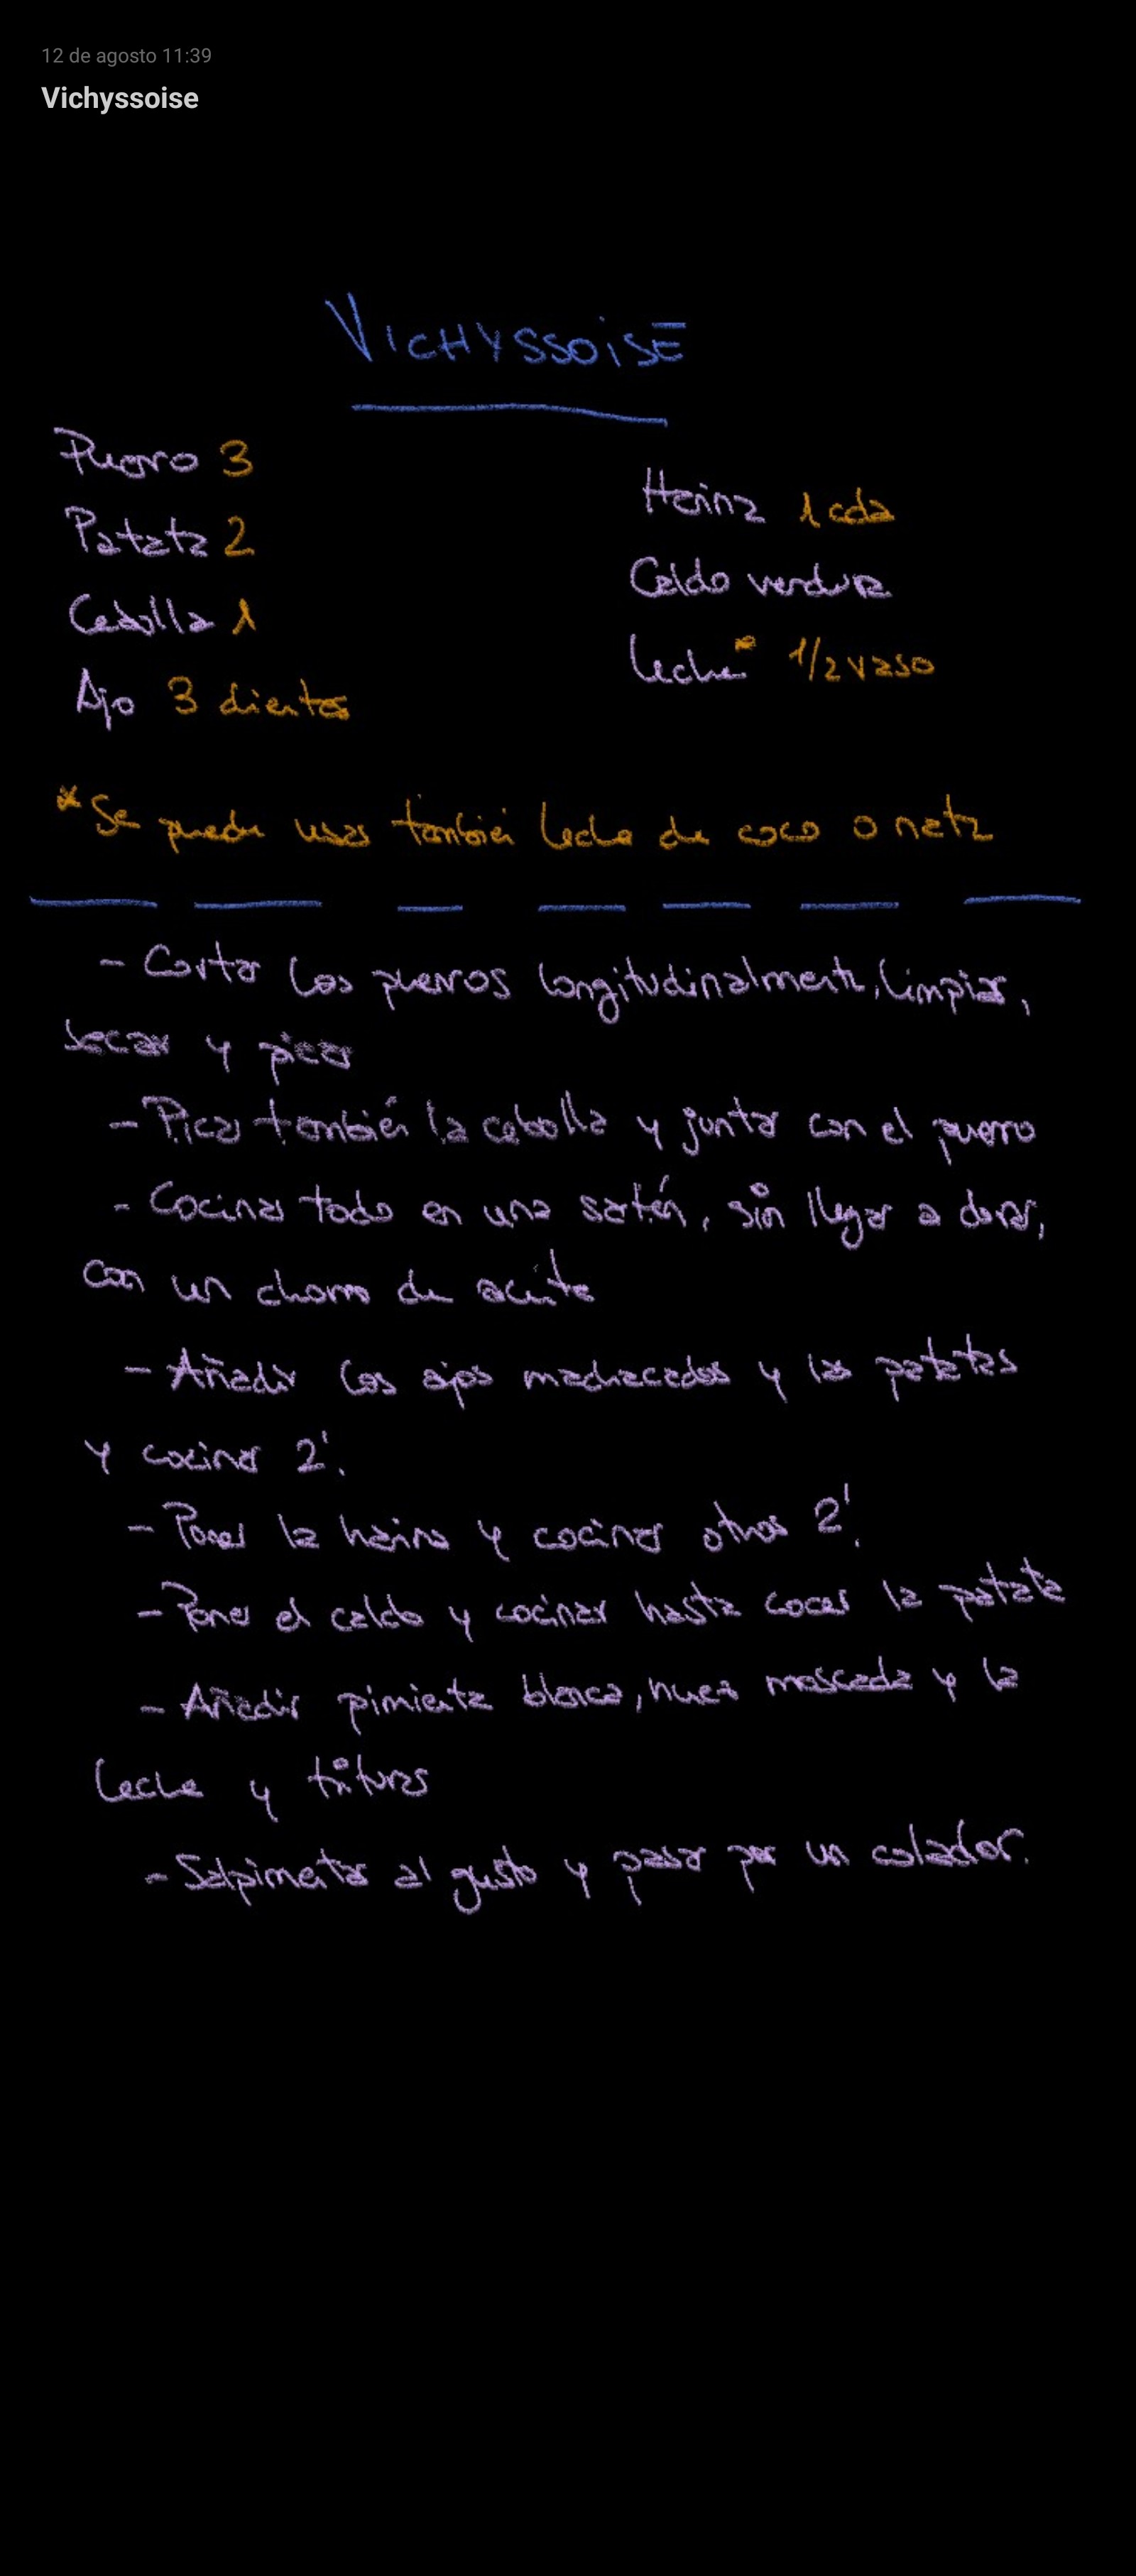 12 de agosto 11:39
Vichyssoise
VICHYSSOISE
Puerro 3
Patata 2
Cebolla 1
Ajo 3 dientes
Harina 1 cda
Caldo verdura
Leche* 1/2 vaso
*Se puede usar también leche de coco o nata
- Cortar los puerros longitudinalmente, limpiar,
secar y picar
- Picar también la cebolla y juntar con el puerro
- Cocinar todo en una sartén, sin llegar a dorar,
con un chorro de aceite
- Añadir los ajos machacados y las patatas
y cocinar 2'.
- Poner la harina y cocinar otros 2'.
- Poner el caldo y cocinar hasta cocer la patata
- Añadir pimienta blanca, nuez moscada y la
leche y triturar
- Salpimentar al gusto y pasar por un colador.